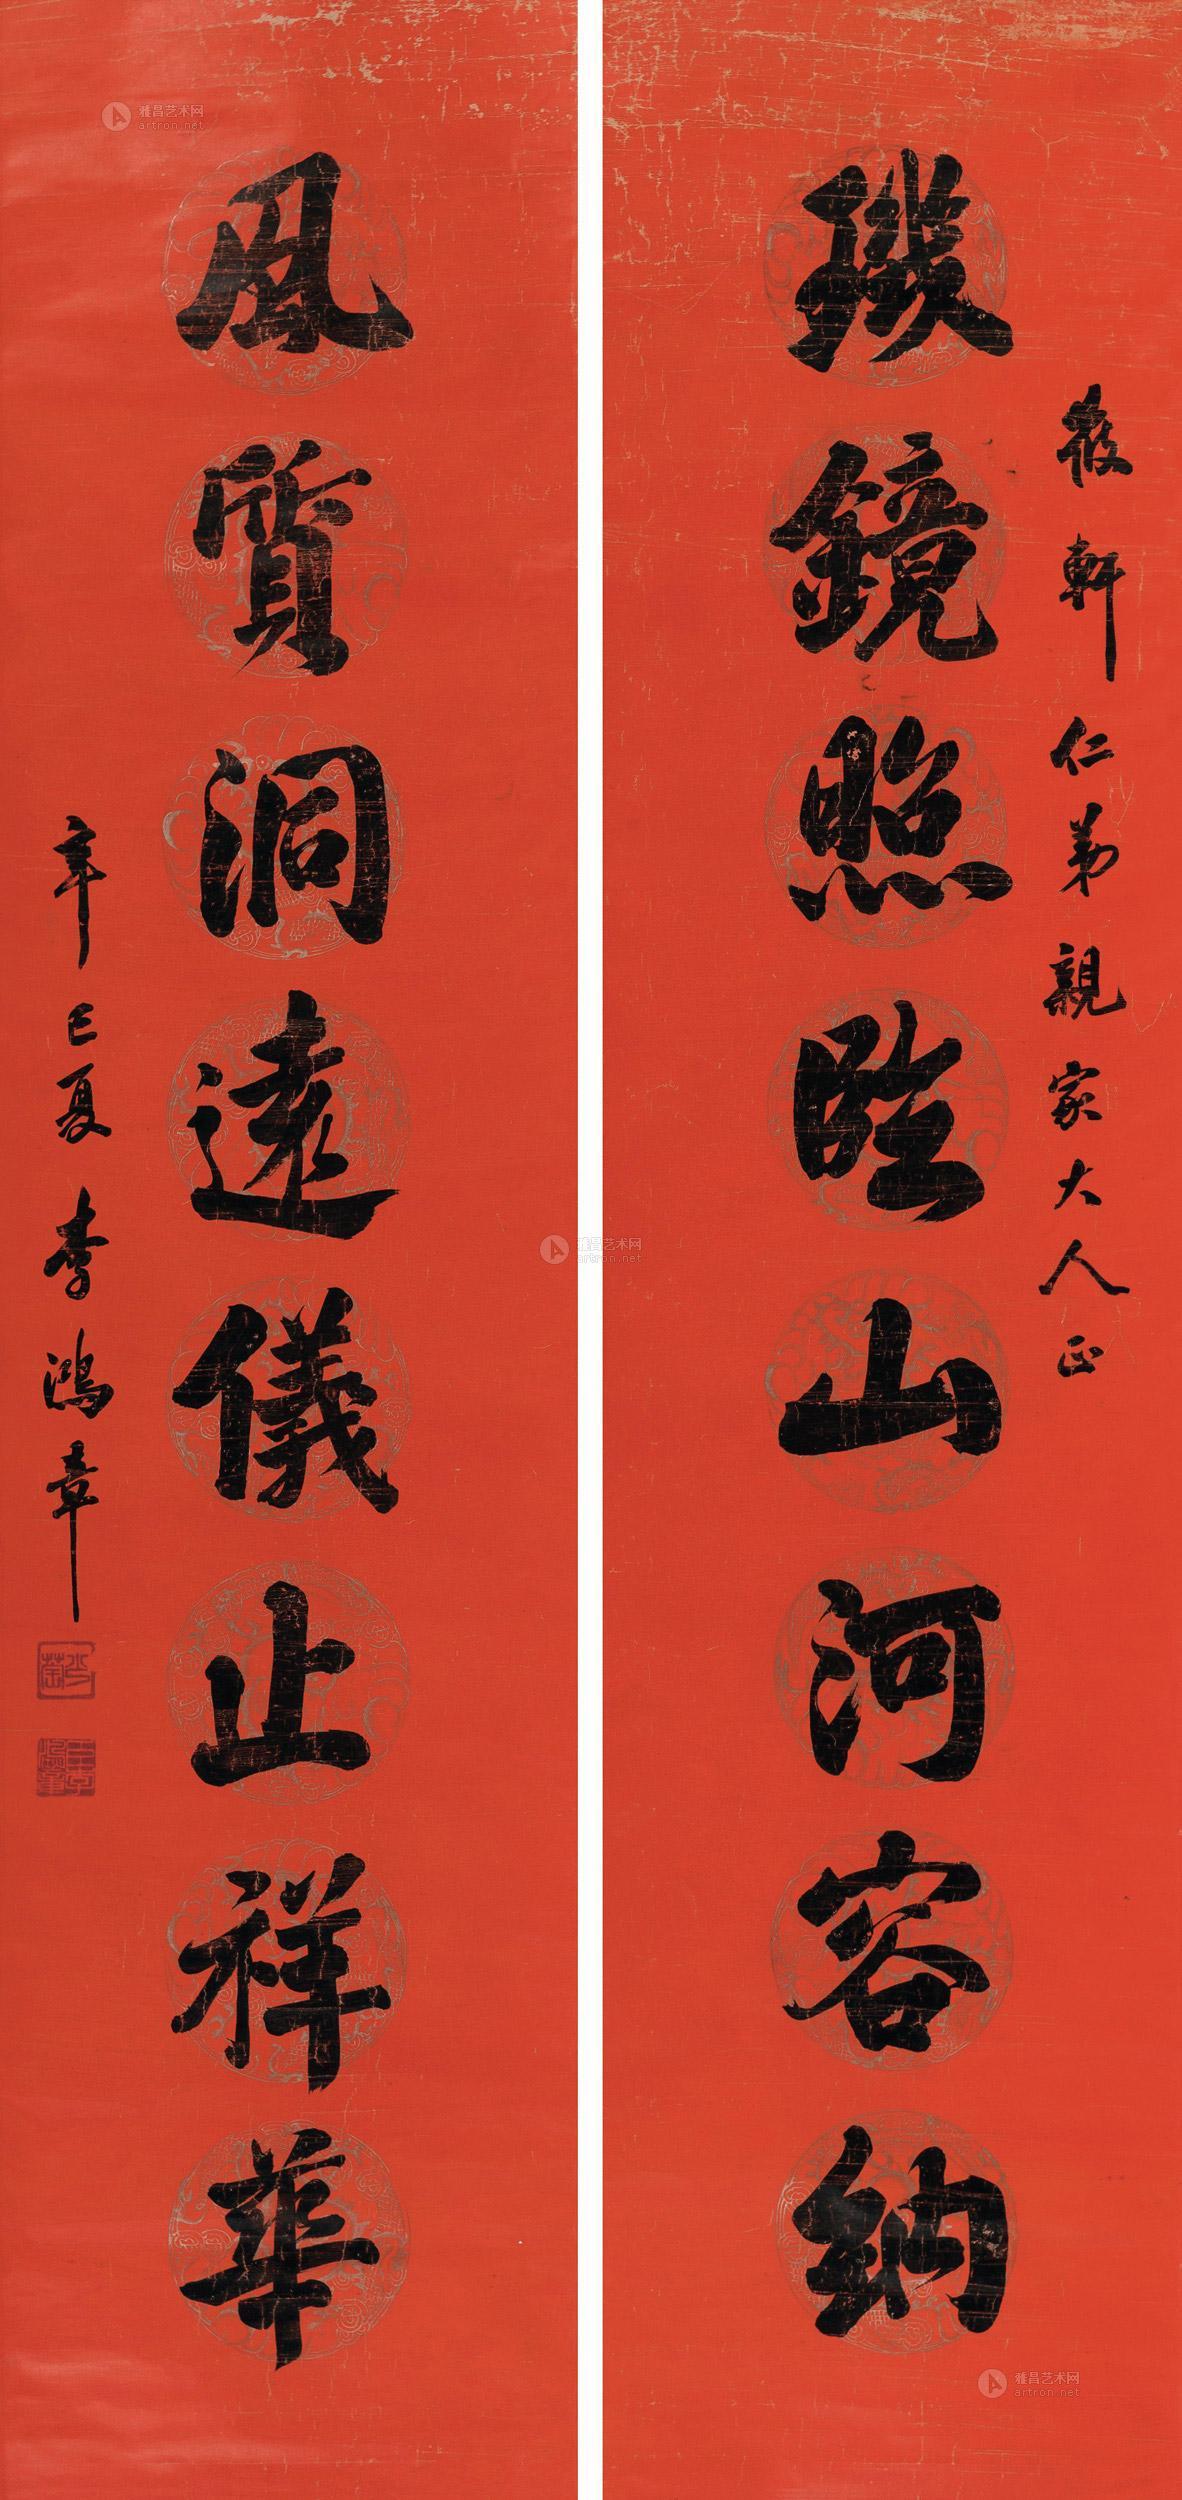 筱軒仁弟親家大人正
璣鏡照臨山河容納
風質洞遠儀止祥華
辛巳夏李鴻章
雅昌艺术网
artron.net
雅昌艺术网
artron.net
雅昌艺术网
artron.net